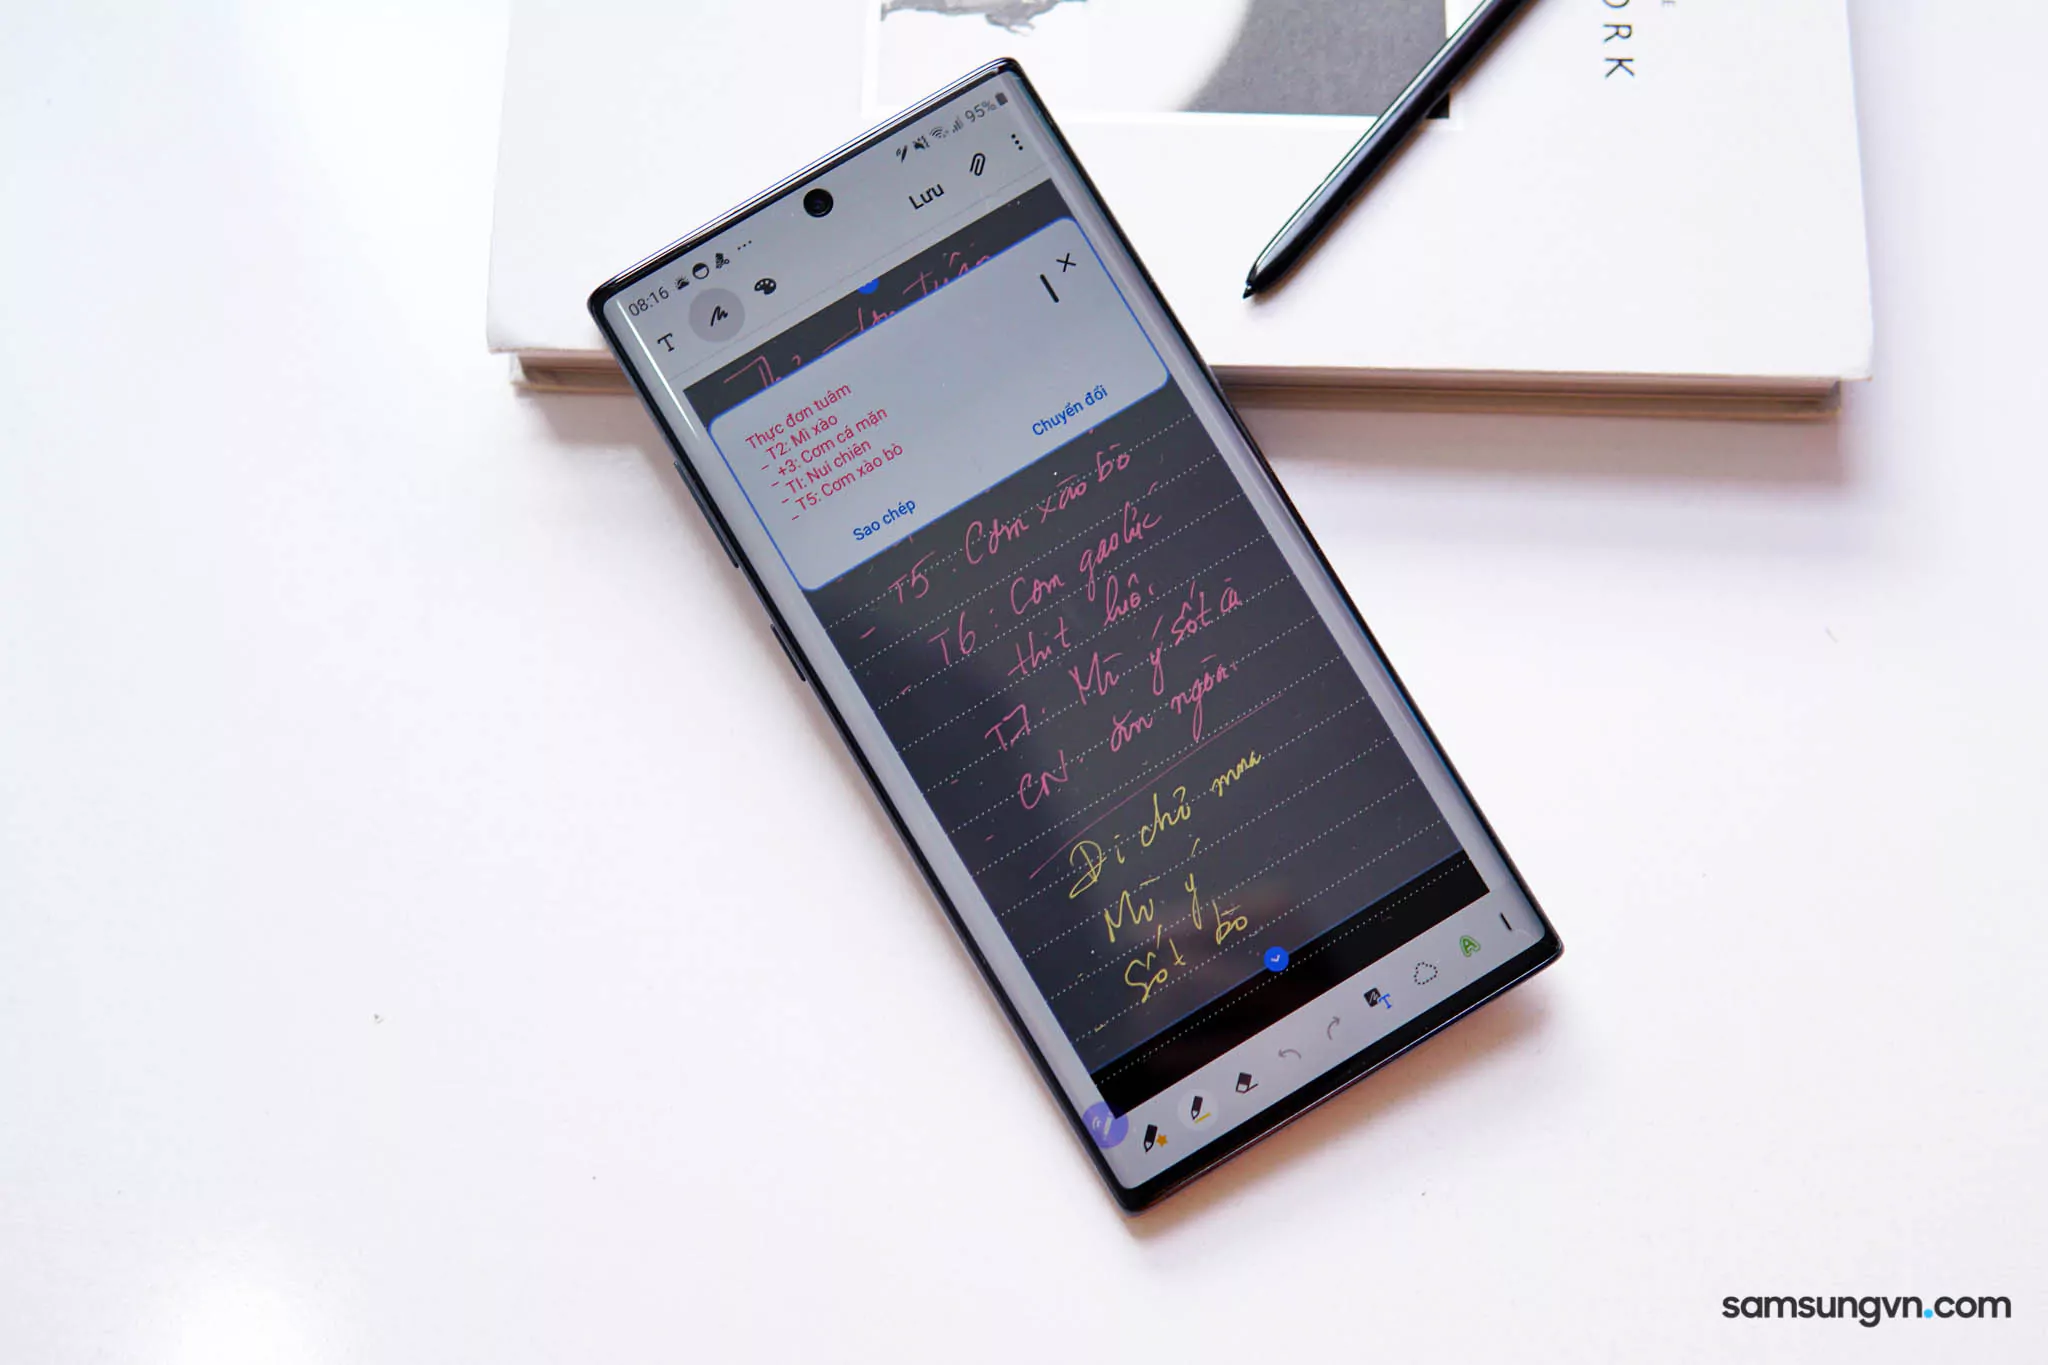 ORK
08:16
95%
T
Lưu
Thực đơn tuâm
- T2: Mì xào
- +3: Cơm cá mặn
- TI: Nui chiên
- T5: Cơm xào bò
Sao chép
Chuyển đổi
- T5: Cơm xào bò
- T6: Cơm gạo lức
thịt luộc
- T7: Mì ý sốt cà
- CN ăn ngoài
Đi chợ mua
Mì ý
- Sốt bò
T
A
samsungvn.com